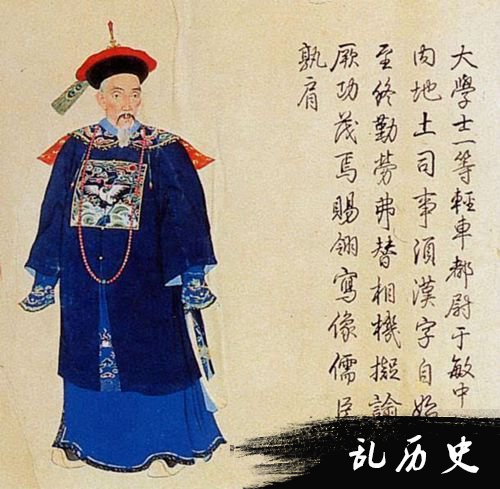 大學士一等輕車都尉于敏中
內地土司事須漢字自始
至終勤勞弗替相機擬諭
厥功茂焉賜翎寫像儒臣
孰肩
乱历史